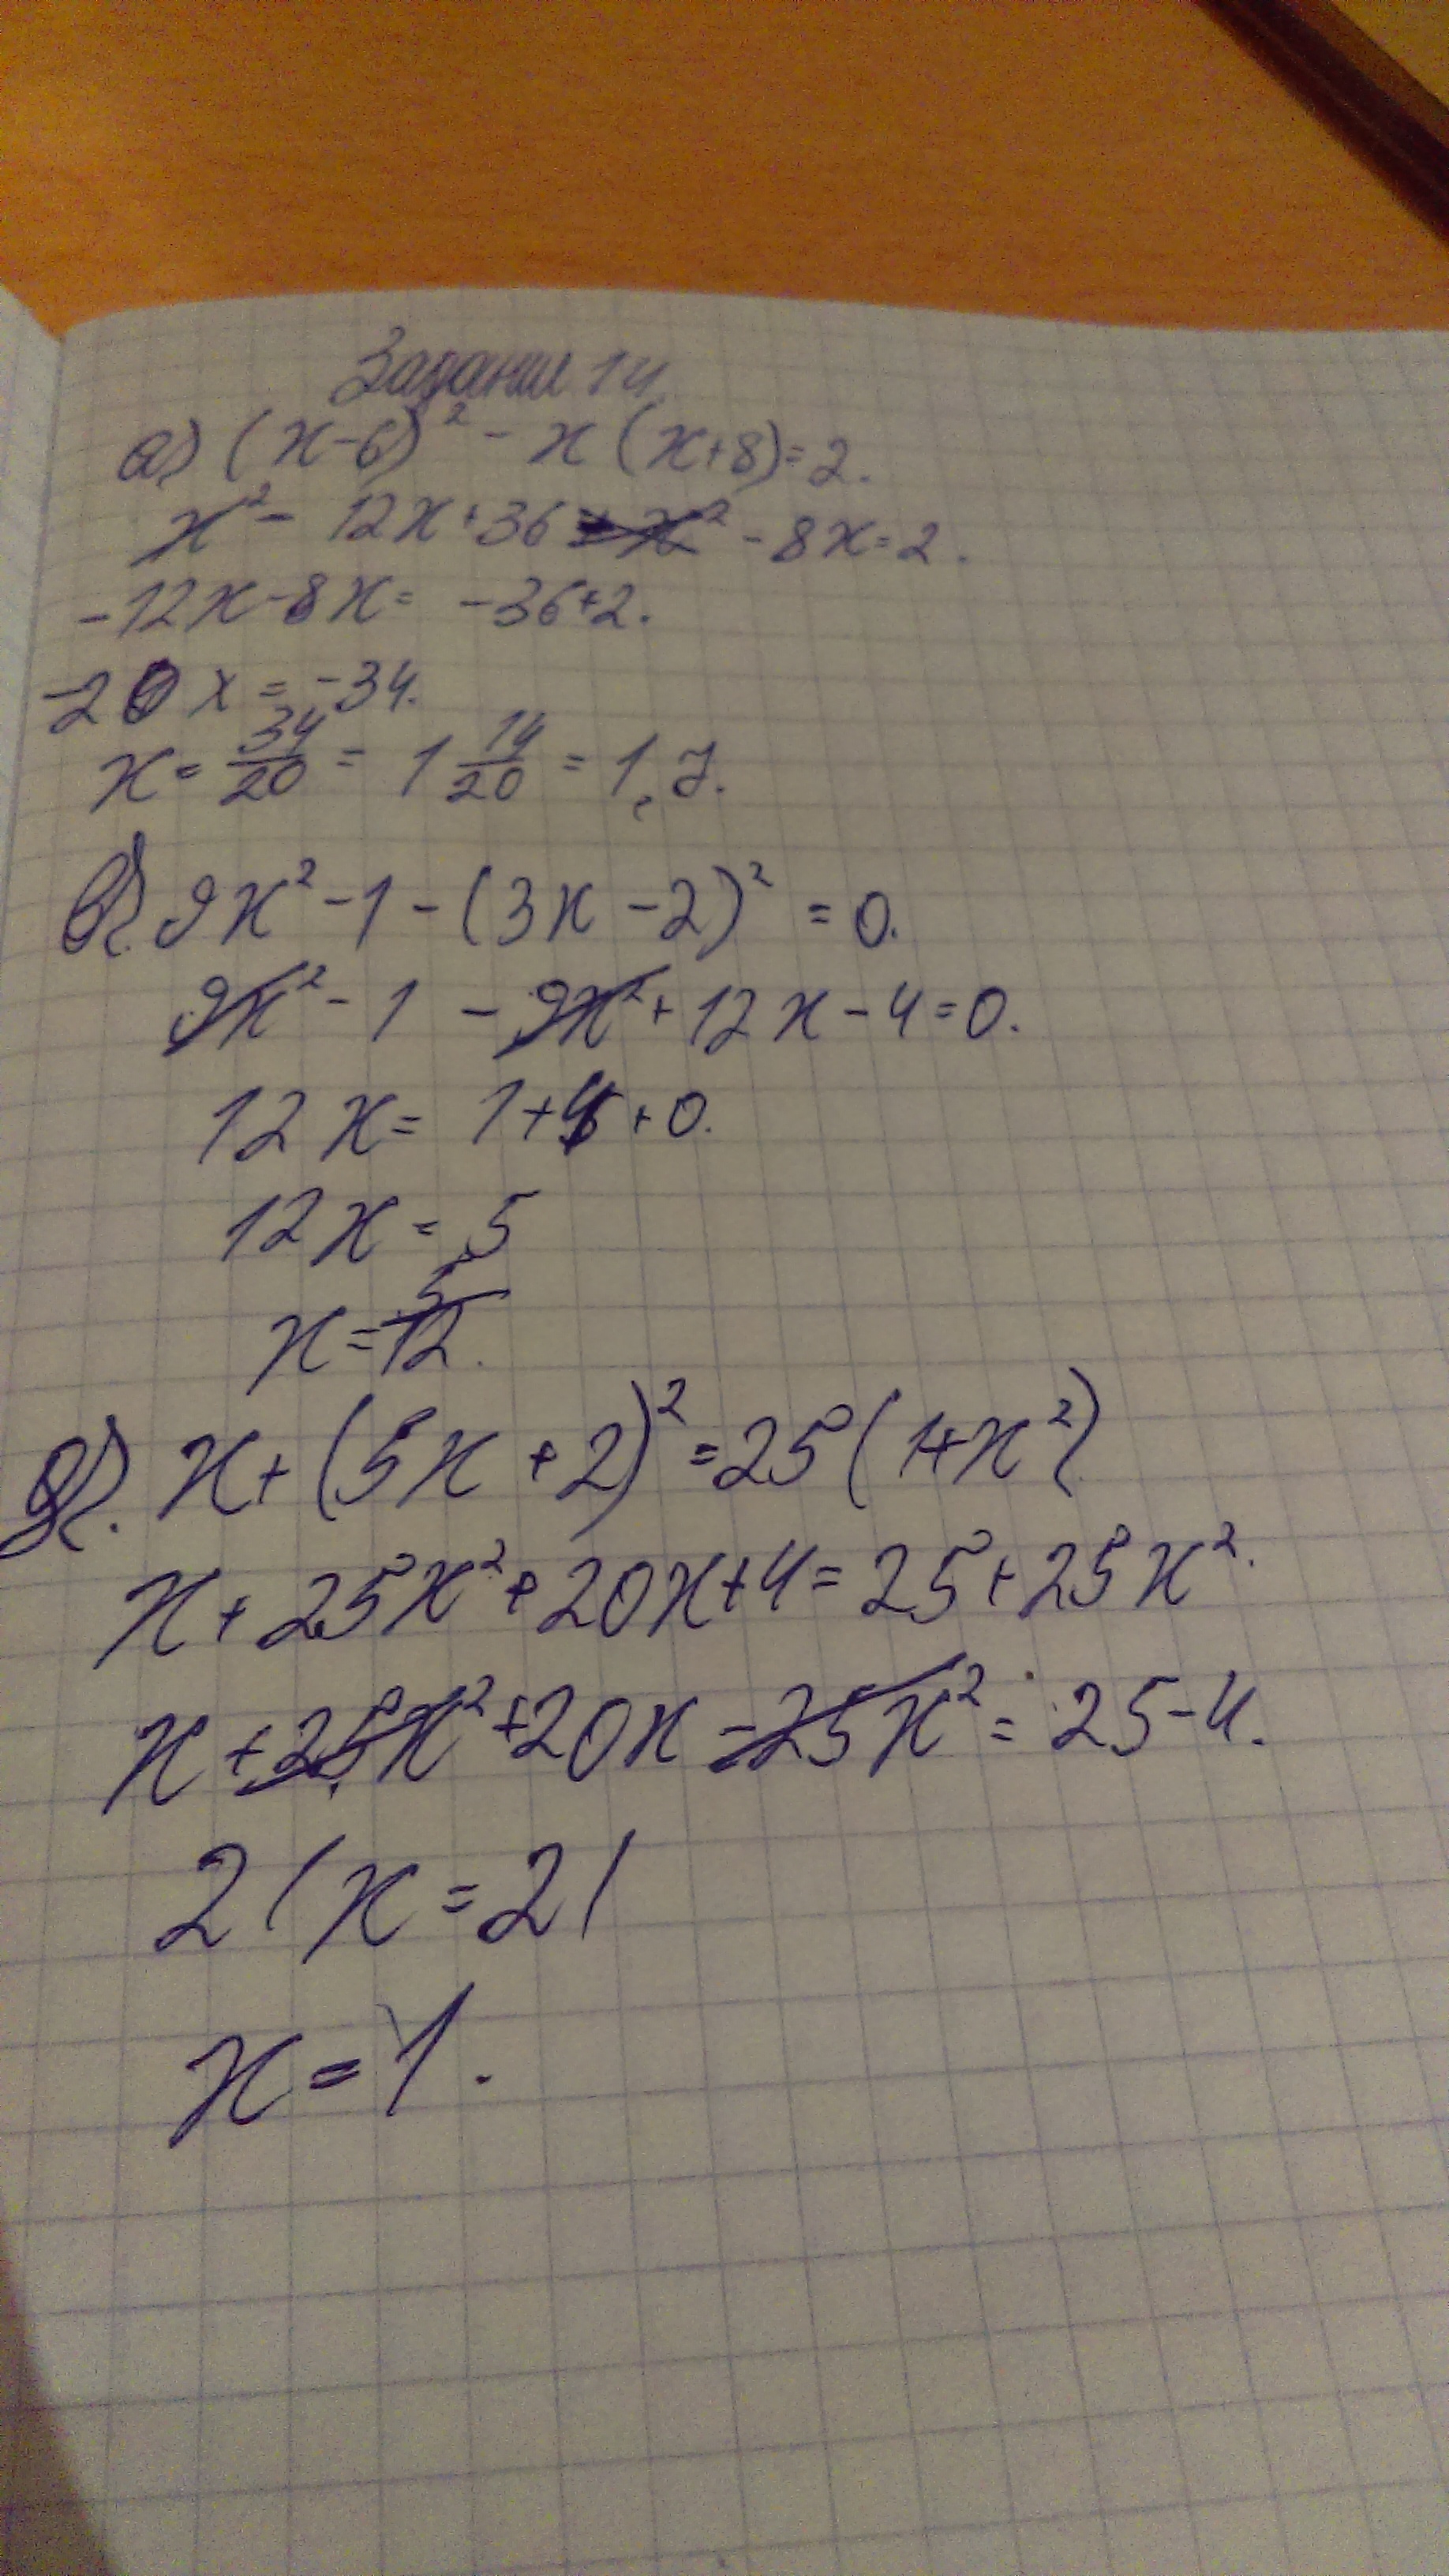 Задание 14
а) (x-6)² - x(x+8)=2.
x² - 12x+36 - x² - 8x=2.
-12x-8x= -36+2.
-20x = -34.
x = 34/20 = 1 14/20 = 1,7.
в). 9x² - 1 - (3x - 2)² = 0.
9x² - 1 - 9x² + 12x - 4 = 0.
12x = 1+4+0.
12x = 5
x = 5/12.
д). x+(5x+2)²=25(1+x²)
x+25x²+20x+4=25+25x².
x+25x²+20x-25x²=25-4.
21x=21
x=1.